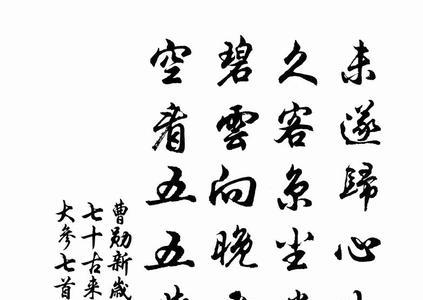 未遂歸心
久客京尘
碧雲向晚
空看五五
曹勛新歲
七十古来
大参七首